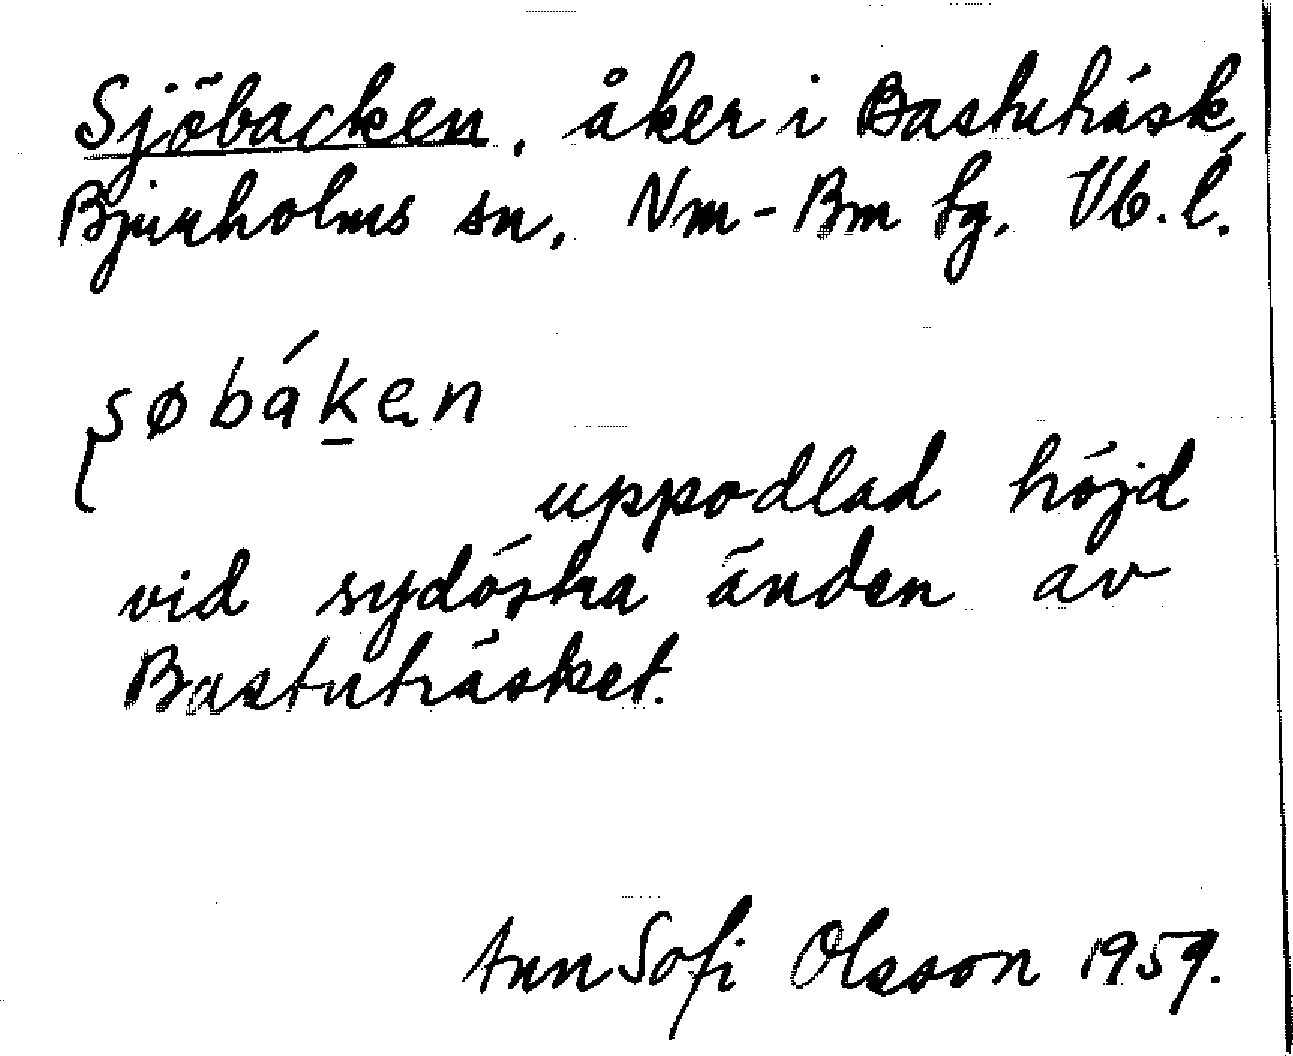 Sjöbacken, åker i Bastuträsk,
Bjurholms sn, Nm-Bm tg. Vb. l.
søbák̲en
uppodlad höjd
vid sydöstra änden av
Bastuträsket.
Ann Sofi Olsson 1959.